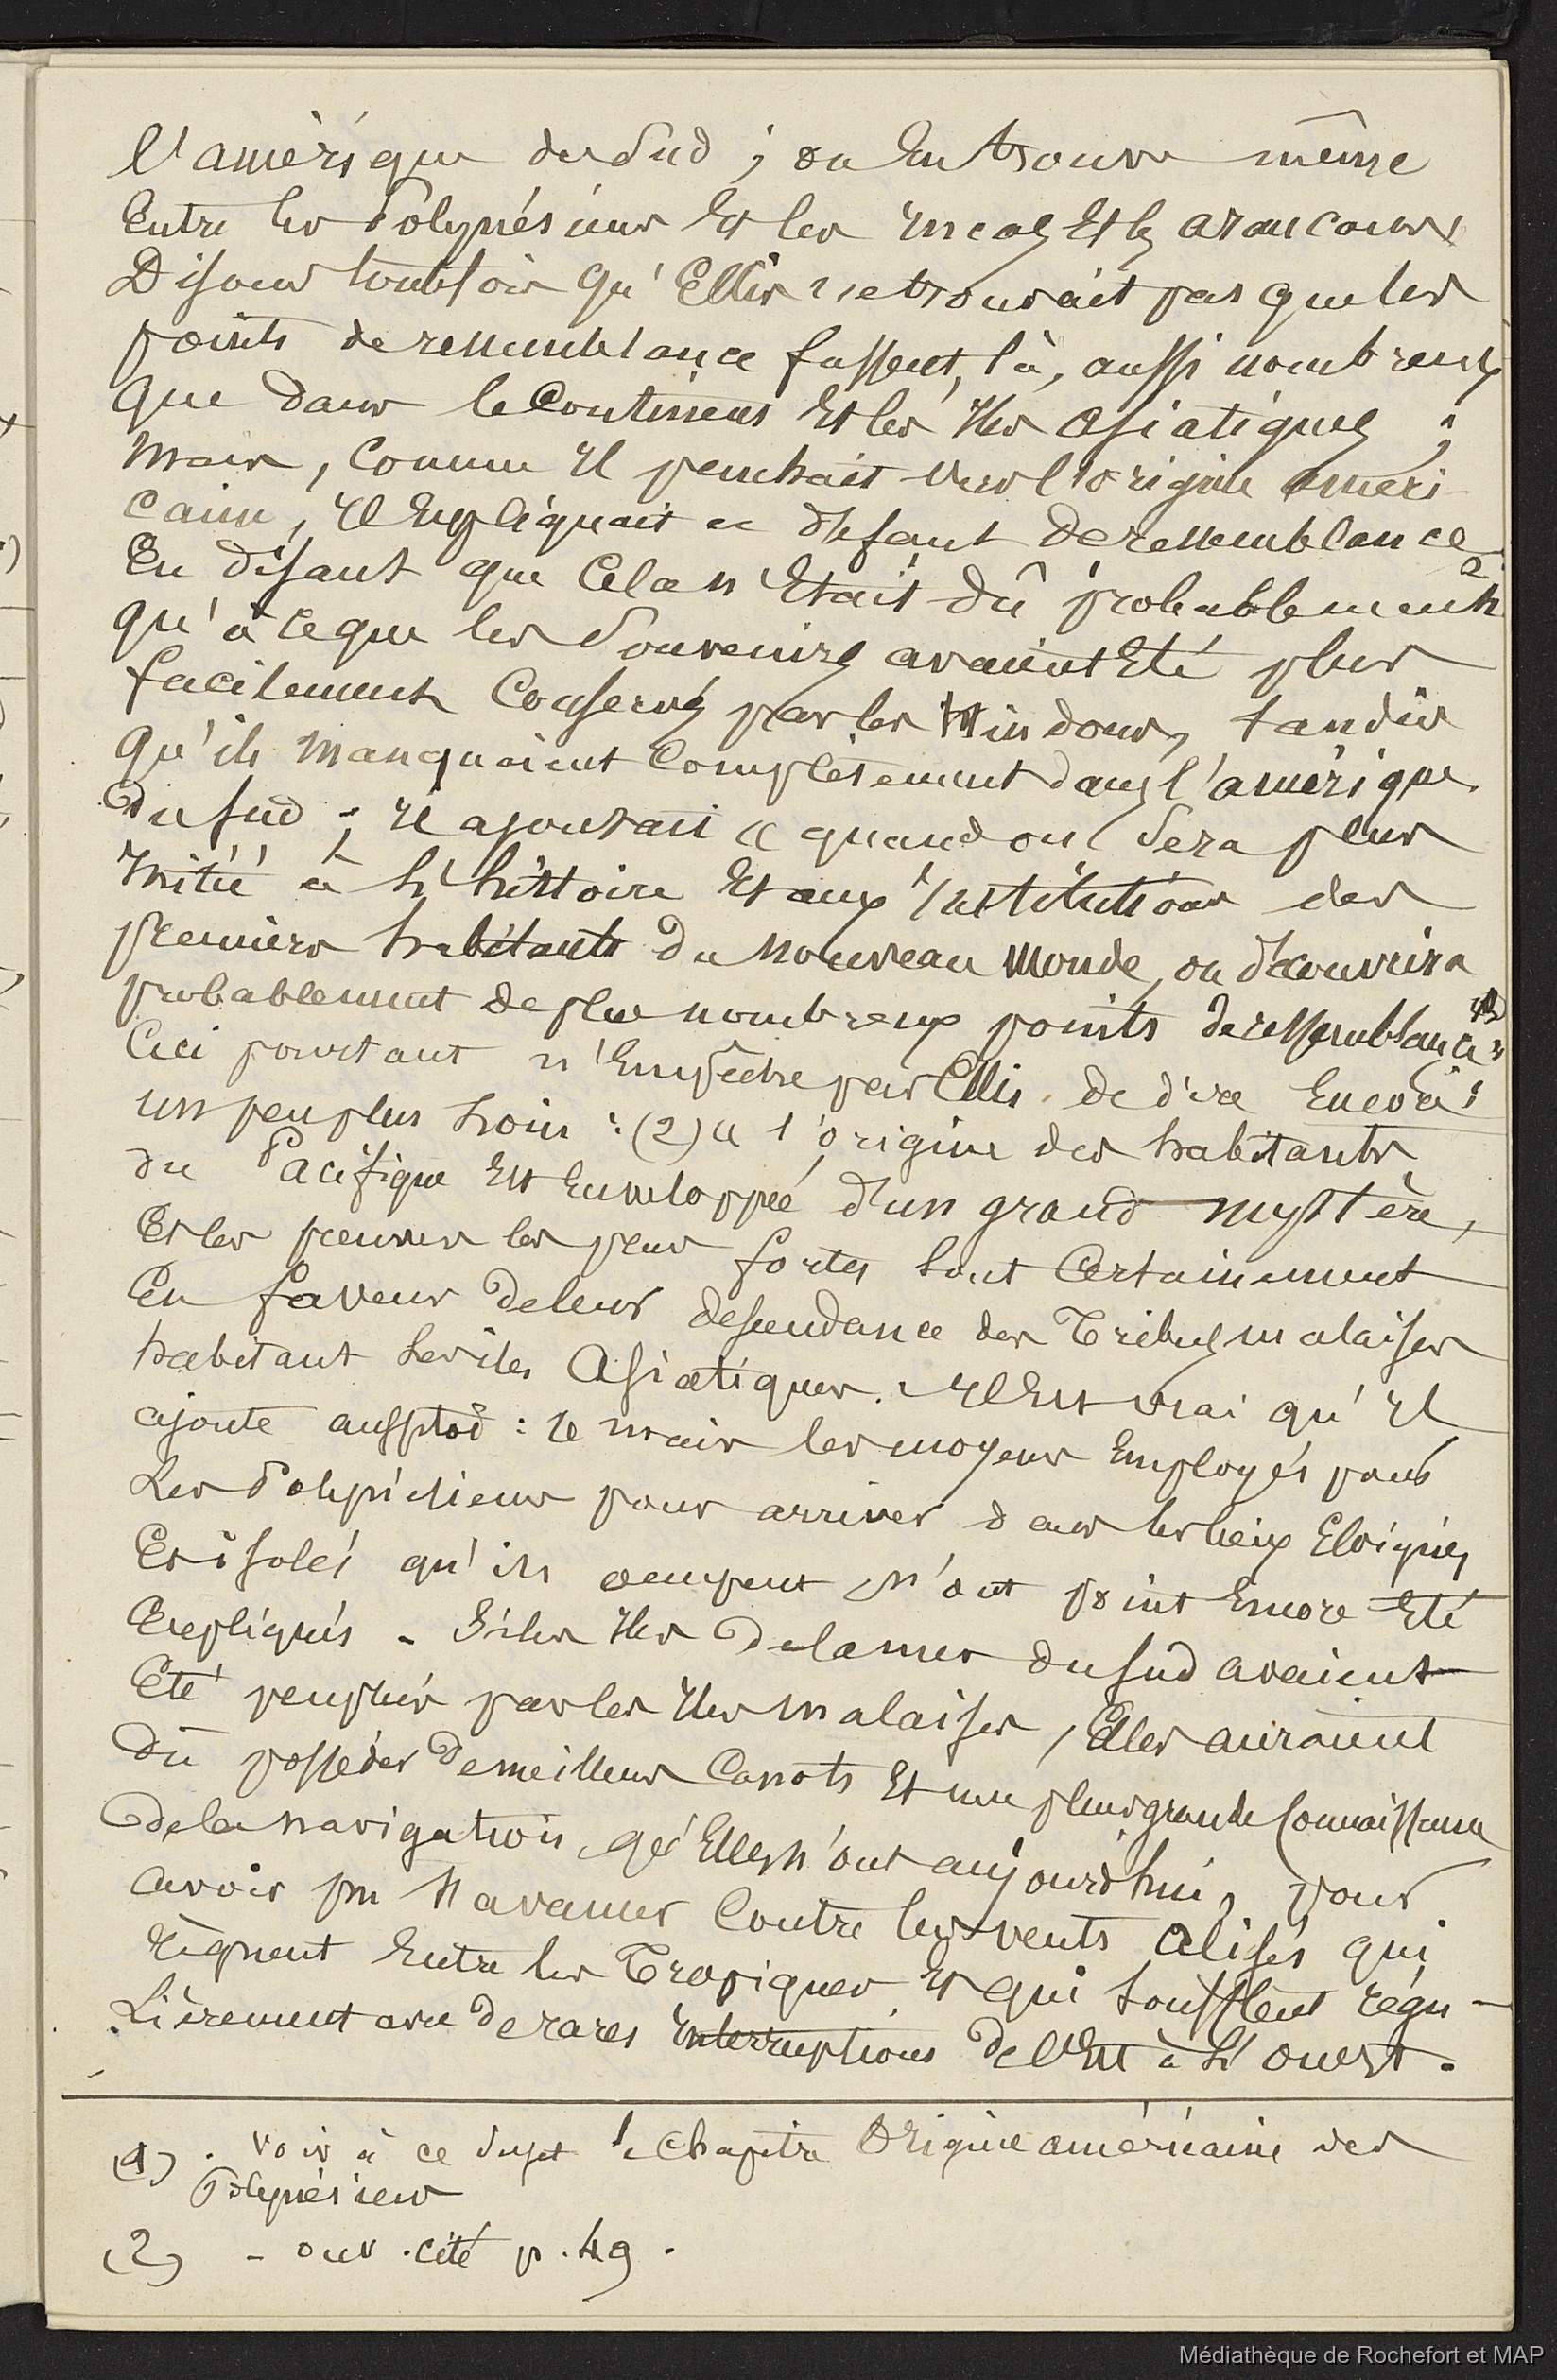 l'amérique du Sud ; on En trouve même
Entre les Polynésiens Et les Incas Et les araucans
Disons toutefois qu'Ellis ne trouvait pas que les
points de ressemblance fussent, là, aussi nombreux
que dans le Continent Et les Iles asiatiques ;
mais, Comme Il penchait vers l'origine améri-
caine, Il Expliquait ce défaut de ressemblance
En disant que Cela n'Etait dû probablement
qu'à ce que les Souvenirs avaient Eté plus
facilement Conservés par les Hindous, tandis
qu'ils manquaient Complètement dans l'amérique
du Sud ; Il ajoutait « quand on Sera plus
Initié à l'histoire Et aux Institutions des
premiers habitants du nouveau Monde, on découvrira
probablement de plus nombreux points de ressemblance »
Ceci pourtant n'Empêche pas Ellis de dire Encore
un peu plus loin : (2) « l'origine des habitants
du Pacifique Est Enveloppée d'un grand mystère,
Et les preuves les plus fortes Sont Certainement
En faveur de leur descendance des Tribus malaises
habitant les îles Asiatiques. Il Est vrai qu'Il
ajoute aussitôt : « mais les moyens Employés par
Les Polynésiens pour arriver dans les lieux Eloignés
Et isolés qu'ils occupent n'ont point Encore Eté
Expliqués - Si les Iles de la mer du Sud avaient
Eté peuplées par les Iles malaises, Elles auraient
dû posséder de meilleurs Canots Et une plus grande Connaissance
de la navigation, qu'Elles n'ont aujourd'hui, pour
avoir pu s'avancer Contre les vents alisés qui
règnent Entre les Tropiques, Et qui Soufflent régu-
lièrement avec de rares Interruptions de l'Est à l'ouest.
(1) . Voir à ce Sujet le chapitre Origine américaine des
Polynésiens
(2) - ouv. cité p. 49.